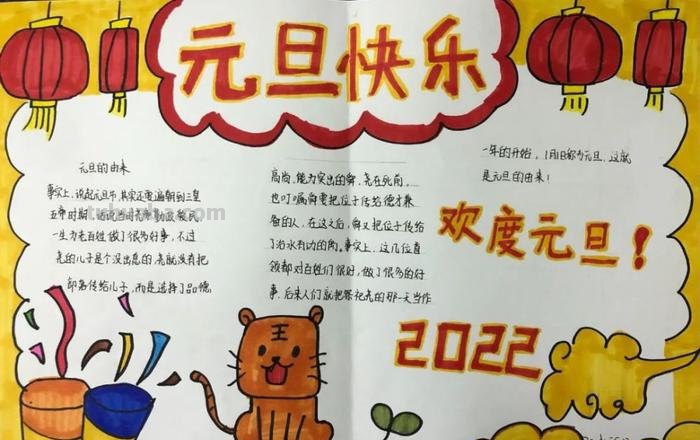 元旦快乐
元旦的由来
事实上,说起元旦节,其实还要追溯到三皇
五帝时期,话说当时尧帝勤政爱民,
一生为老百姓做了很多好事,不过
尧的儿子是个没出息的,尧就没有把
部落传给儿子,而是选择了品德
高尚、能力突出的舜,尧在死前,
也叮嘱舜要把位子传给德才兼
备的人,在这之后,舜又把位子传给
了治水有功的禹。事实上,这几位首
领都对百姓们很好,做了很多的好
事,后来人们就把祭祀尧的那一天当作
一年的开始,1月1日称为元旦,这就
是元旦的由来!
欢度元旦!
2022
王